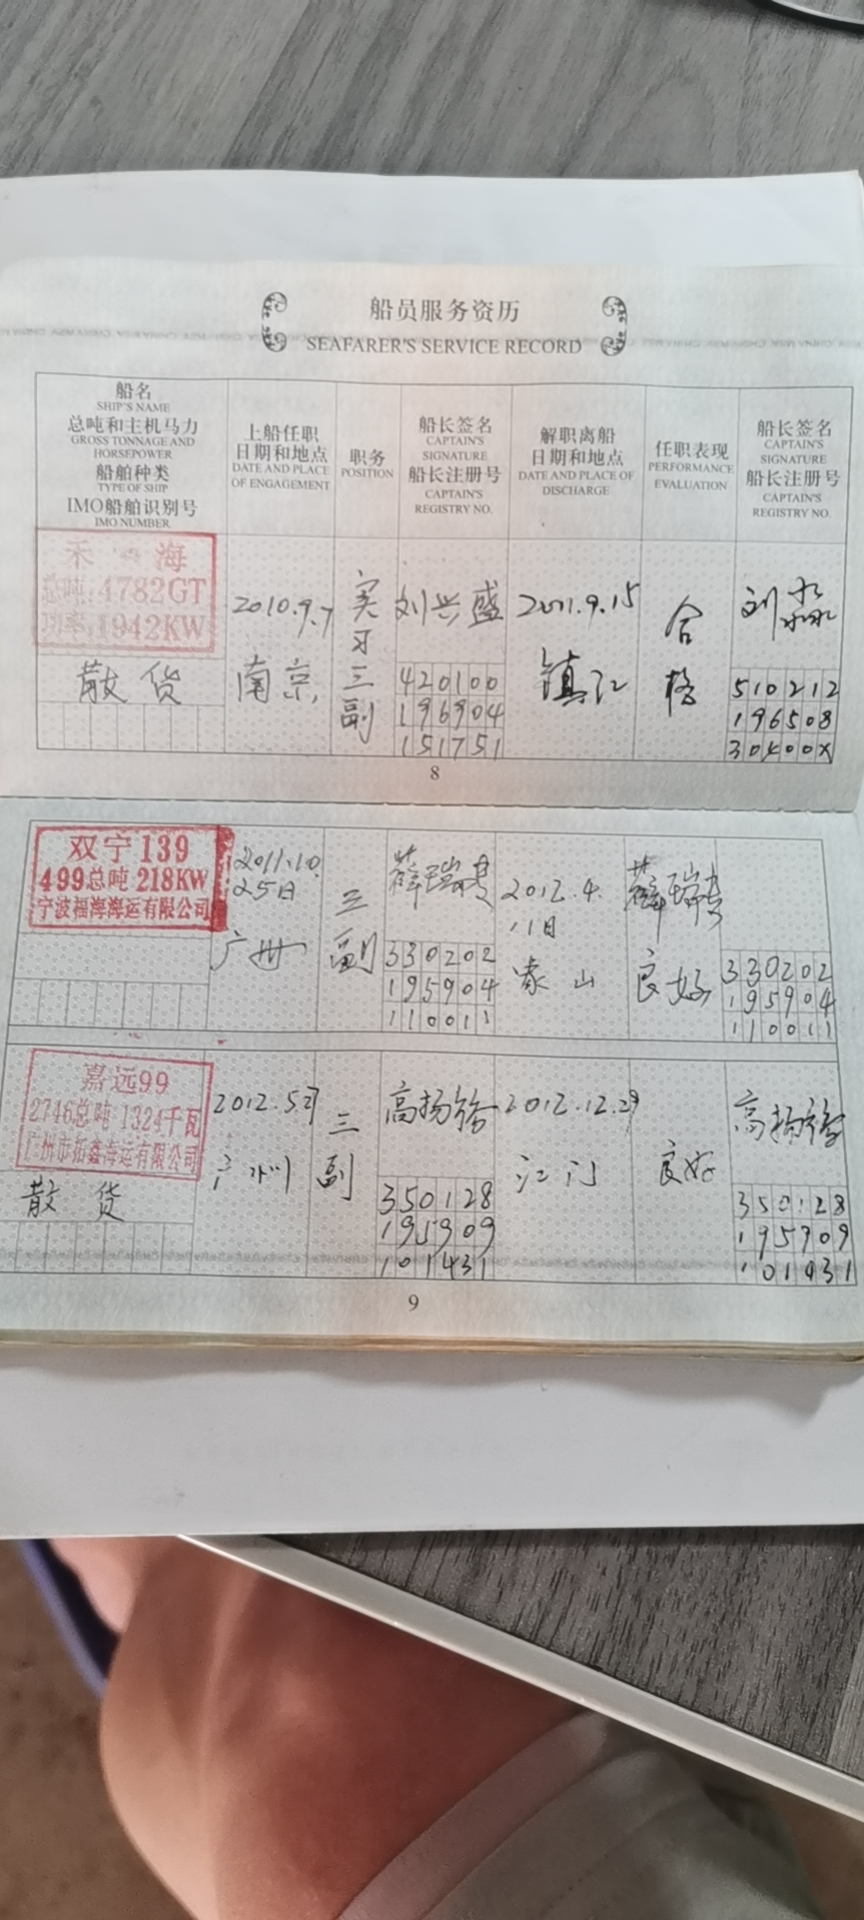 船员服务资历
SEAFARER'S SERVICE RECORD
船名
SHIP'S NAME
总吨和主机马力
GROSS TONNAGE AND
HORSEPOWER
船舶种类
TYPE OF SHIP
IMO船舶识别号
IMO NUMBER
上船任职
日期和地点
DATE AND PLACE
OF ENGAGEMENT
职务
POSITION
船长签名
CAPTAIN'S
SIGNATURE
船长注册号
CAPTAIN'S
REGISTRY NO.
解职离船
日期和地点
DATE AND PLACE OF
DISCHARGE
任职表现
PERFORMANCE
EVALUATION
船长签名
CAPTAIN'S
SIGNATURE
船长注册号
CAPTAIN'S
REGISTRY NO.
禾 海
总吨:4782GT
功率:1942KW
散货
2010.9.7
南京
实习三副
刘兴盛
420100
196904
151751
2011.9.15
镇江
合格
刘淼
510212
196508
8
双宁139
499总吨 218KW
宁波福海海运有限公司
2011.10.
25日
广州
三副
330202
195904
110011
2012.4.
11日
象山
良好
330202
195904
110011
嘉远99
2746总吨 1324千瓦
广州市拓鑫海运有限公司
散货
2012.5.27
广州
三副
350128
195909
101431
2012.12.29
江门
良好
350128
195909
101431
9